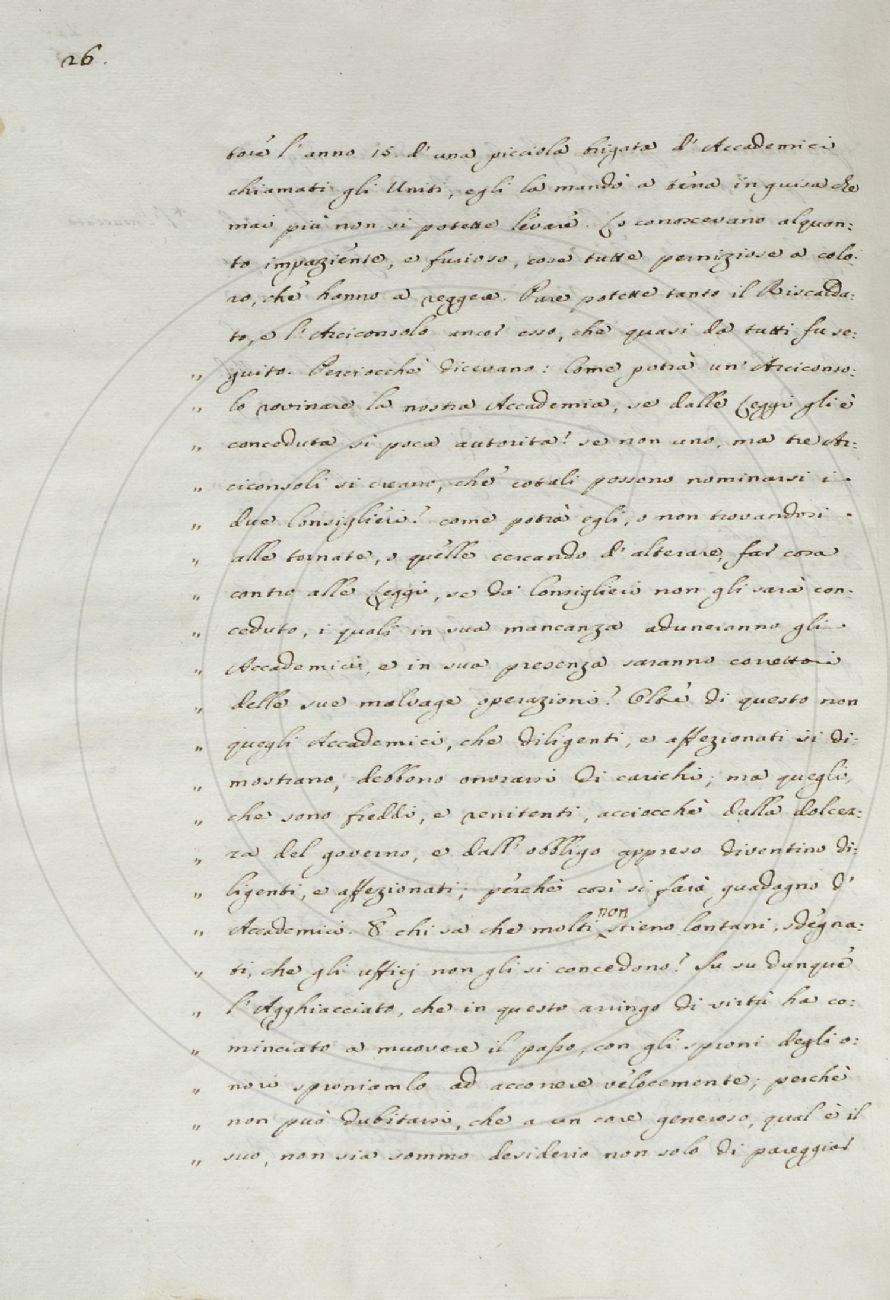 26.
tore l'anno 15. d'una picciola brigata d'Accademici
chiamati gli Uniti, egli la mandò a terra in guisa che
mai più non si potette levare. Lo conoscevano alquan-
to impaziente, e furioso, cose tutte perniziose a colo-
ro, che hanno a reggere. Pure potette tanto il Riscalda-
to, e l'Arciconsolo ancor esso, che quasi da tutti fu se-
" guito. Perciocchè dicevano: Come potrà un'Arciconso-
" lo rovinare la nostra Accademia, se dalle Leggi gli è
" conceduta si poca autorità? se non uno, ma tre Ar-
" ciconsoli si creano, chè cotali possono nominarsi i
" due Consiglieri? come potrà egli, o non trovandosi
" alle tornate, o quelle cercando d'alterare, far cosa
" contro alle Leggi, se da' Consiglieri non gli sarà con-
" ceduto, i quali in sua mancanza aduneranno gli
" Accademici, e in sua presenza saranno correttori
" delle sue malvage operazioni? Oltre di questo non
" quegli Accademici, che diligenti, e affezionati si di-
" mostrano, debbono onorarsi di carichi; ma quegli,
" che sono freddi, e renitenti, acciocchè dalla dolcez-
" za del governo, e dall'obbligo appreso diventino di-
" ligenti, e affezionati; perchè così si farà guadagno d'
" Accademici. E chi sa che molti non stieno lontani, sdegna-
" ti, che gli ufficj non gli si concedono? Su su dunque
" l'Agghiacciato, che in questo arringo di virtù ha co-
" minciato a muovere il passo, con gli sproni degli o-
" nori sproniamlo ad accorrere velocemente; perchè
" non può dubitarsi, che a un core generoso, qual è il
" suo, non sia sommo desiderio non solo di pareggiar